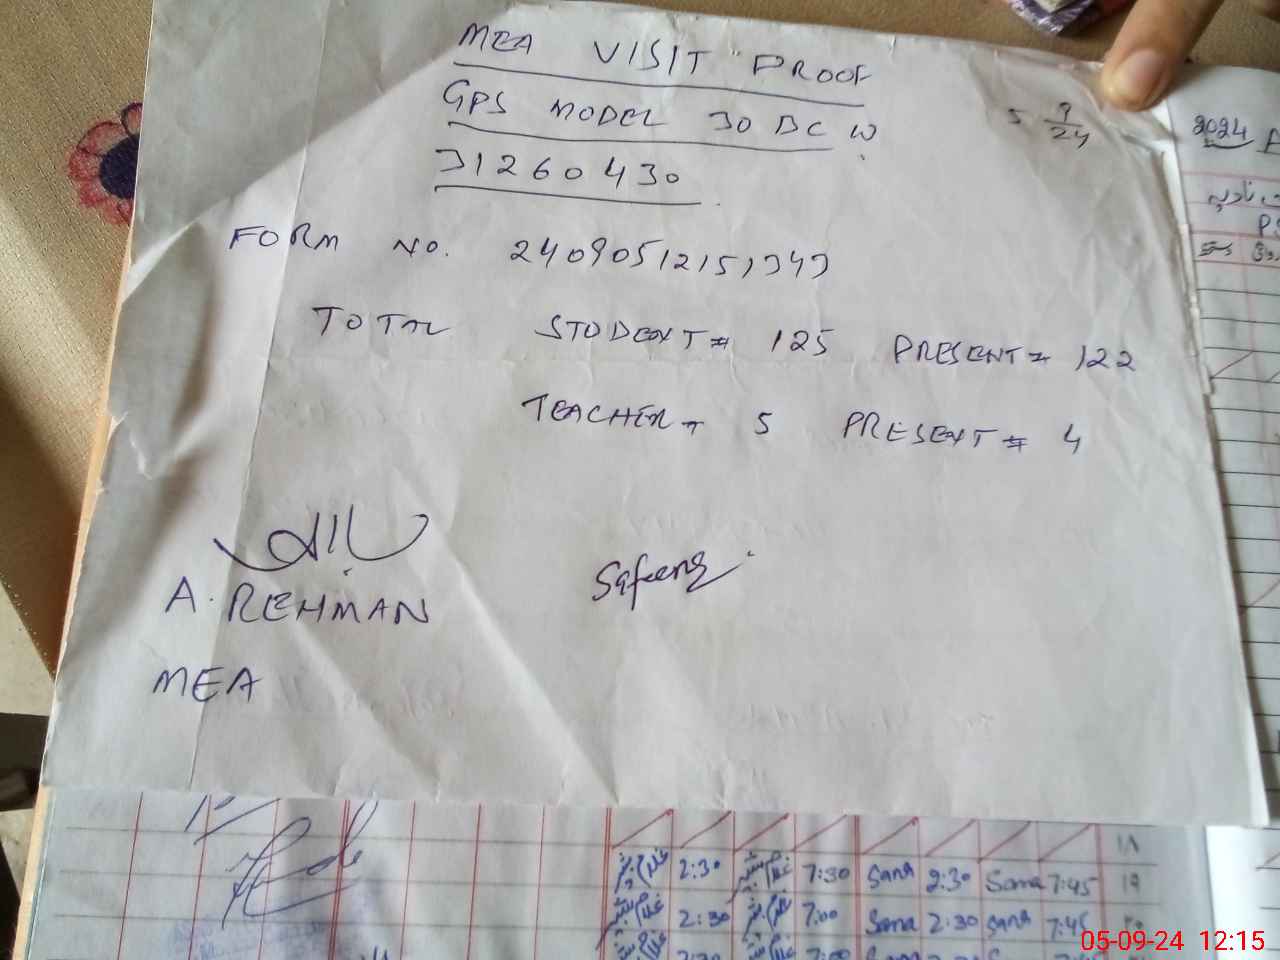 MEA VISIT PROOF
GPS MODEL 30 BC W
31260430
5 9/24
FORM NO. 24090512151343
TOTAL STUDENT = 125 PRESENT = 122
TEACHER = 5 PRESENT = 4
A. REHMAN
MEA
Safeena
2024
2:30 7:30 Sana 2:30 Sana 7:45 ١٩
2:30 7:00 Sana 2:30 Sana 7:45
05-09-24 12:15